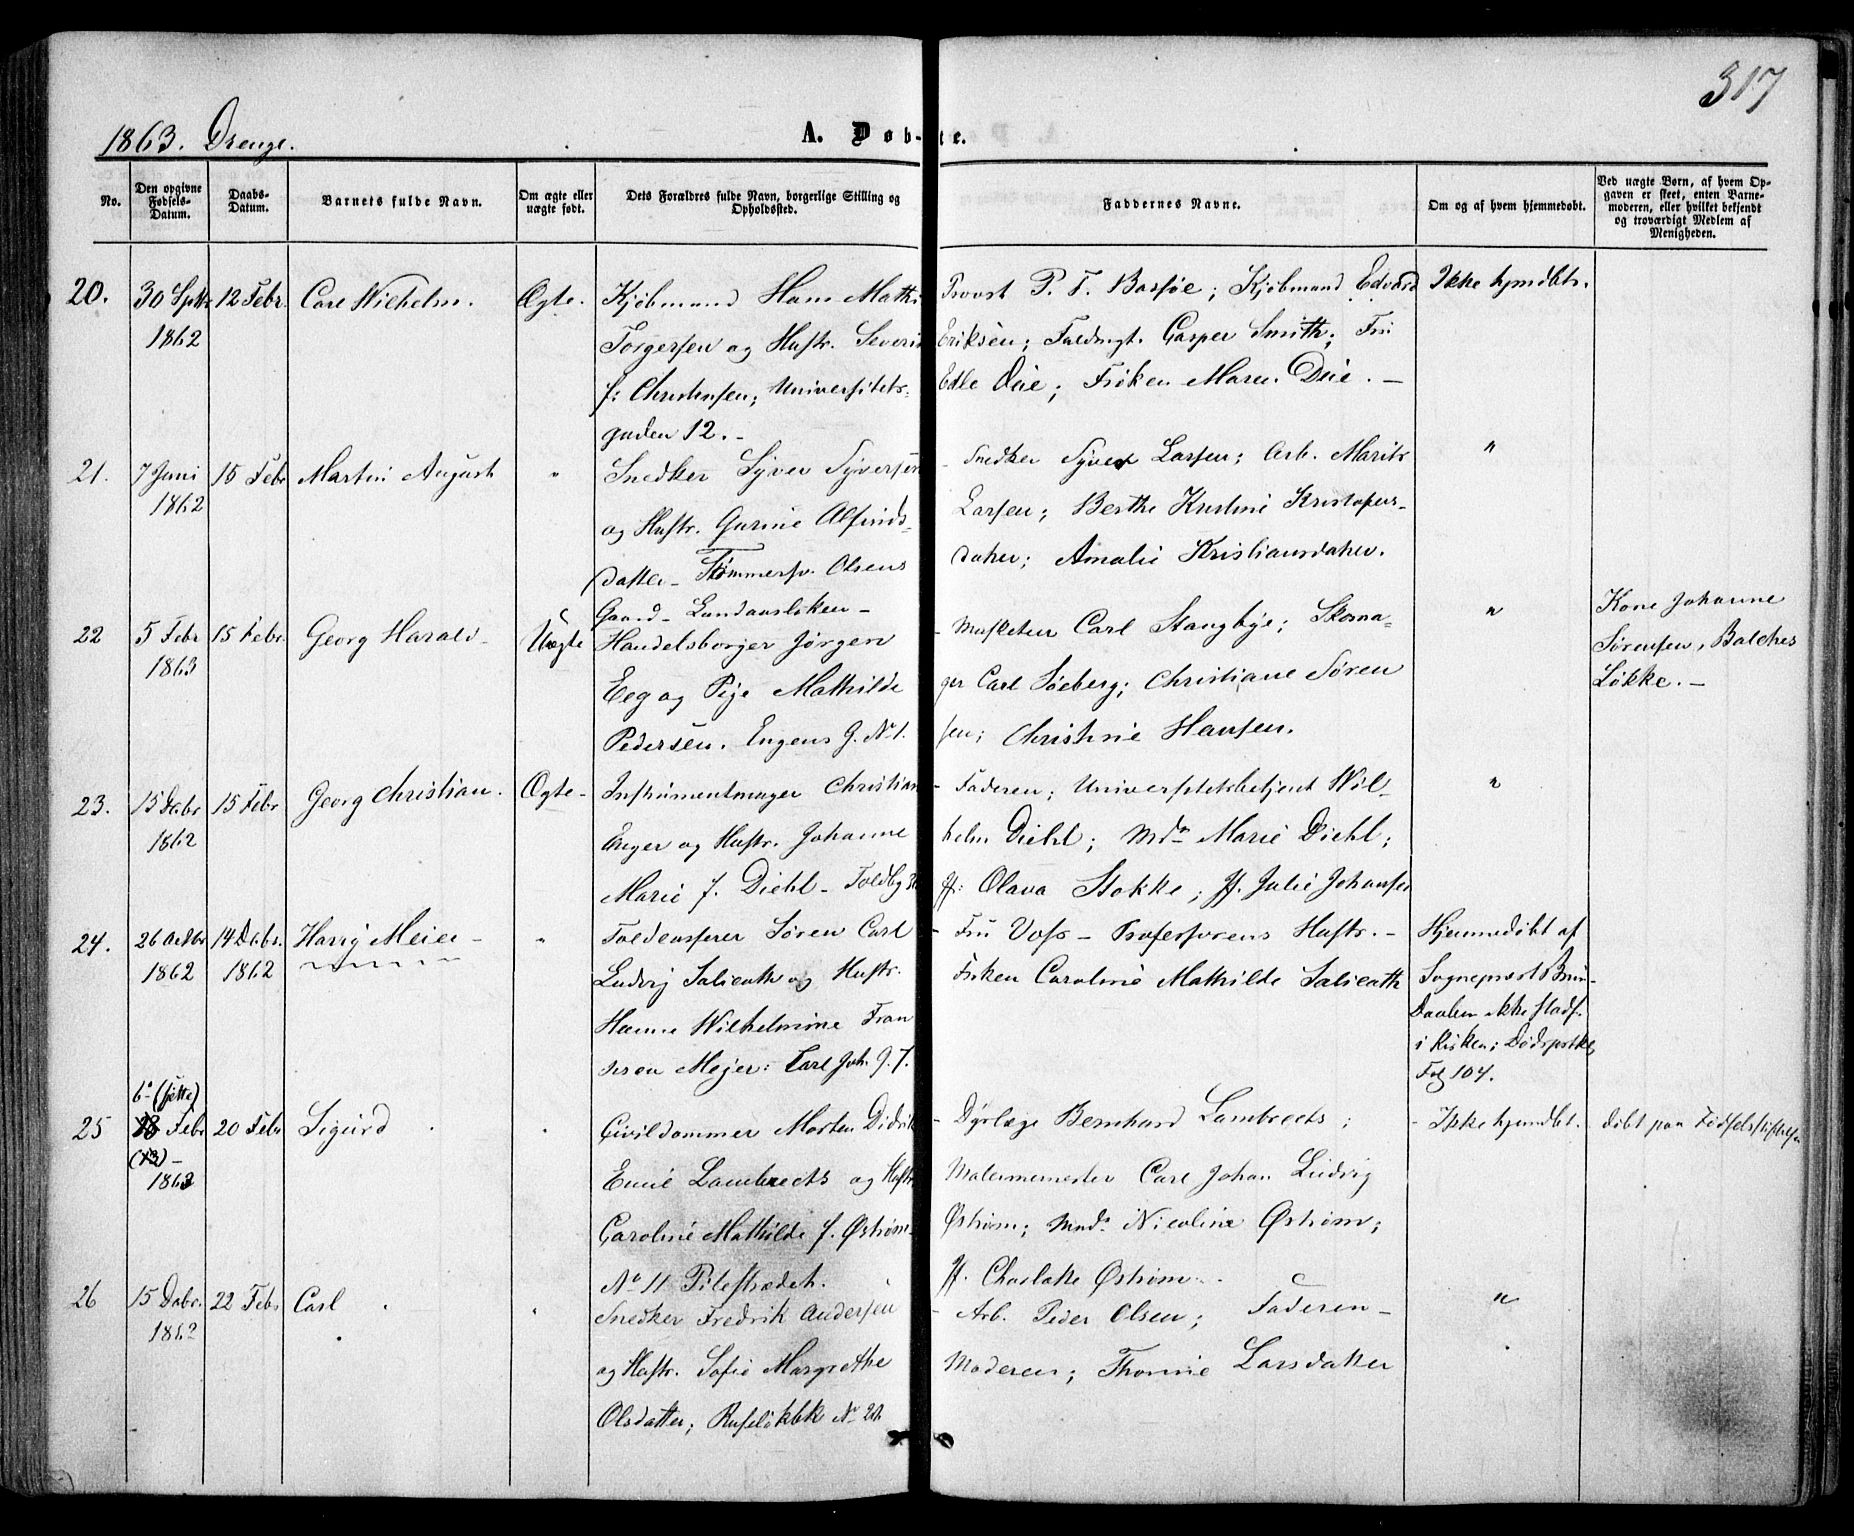 317
1863. Drenge.
A. Døb-te.
No.
Den opgivne Fødsels-Datum.
Daabs-Datum.
Barnets fulde Navn.
Om ægte eller uægte født.
Dets Forældres fulde Navn, borgerlige Stilling og Opholdssted.
Faddernes Navne.
Om og af hvem hjemmedøbt.
Ved uægte Børn, af hvem Op-
gaven er skeet, enten Barne-
moderen, eller hvilket bekjendt
og troværdigt Medlem af
Menigheden.
20. 30 Sptbr 1862 12 Febr. Carl Wilhelm. Ægte.
Kjøbmand Hans Math.
Torgersen og Hustr. Severin
f: Christensen; Universitets-
gaden 12. -
Provst P. T. Bassøe; Kjøbmand Edvard
Eriksen; Fuldmgt. Casper Smith; Fru
Edle Deie; Frøken Maren Deie. -
Ikke hjmdbt.
21. 7 Juni 1862 15 Febr Martin August "
Snedker Syver Syversen
og Hustr. Gurine Alfinds-
datter - Tømmersv. Olsens
Gaard - Lundausløken -
- Snedker Syver Larsen; Arb. Marits
Larsen; Berthe Kristine Kristofers-
datter; Amalie Kristiansdatter.
"
22 5 Febr 1863 15 Febr. Georg Harald - Uægte
Handelsborger Jørgen
Eeg og Pige Mathilde
Pedersen. Engens G. No 1.
- Musketeer Carl Stangbye; Skoma-
ger Carl Søeberg; Christiane Søren
sen; Christine Hansen.
"
Kone Johanne
Sørensen, Balches
Løkke. -
23. 15 Decbr 1862 15 Febr Georg Christian. Ægte -
Instrumentmager Christian
Unger og Hustr. Johanne
Marie f. Diehl - Toldbg 3
- Faderen; Universitetsbetjent Wil-
helm Diehl; Mdm Marie Diehl;
Jf: Olava Stokke; Jf. Julie Johansen
"
24. 26 Octbr 1862 14 Decbr. 1862 Harry Meier - "
Toldcasserer Søren Carl
Ludvig Salicath og Hustr.
Hanne Wilhelmine Fran
Meijer: Carl Joh. G. 7.
- Fru Voss - Professorens Hustr. -
Frøken Caroline Mathilde Salicath
Hjemmedøbt af
Sognepræst Brun-
Daaben ikke stadf.
i Kirken; Dødsprotk.
Fol 104.
25 6te (sjette) Febr 1863 20 Febr Sigurd "
Civildommer Morten Didrik
Emil Lambrects og Hustr
Caroline Mathilde f. Østrøm-
No 11 Pilestrædet.
- Dyrlæge Bernhard Lambrects;
Malermester Carl Johan Ludvig
Østrøm; Mad. Nicoline Østrøm;
Jf. Charlotte Østrøm.
- Ikke hjemdbt.
døbt paa Fødselsstiftelsen
26 15 Decbr. 1862 22 Febr Carl "
Snedker Fredrik Andersen
og Hustr. Sofie Margrethe
Olsdatter; Ruseløkbk No
- Arb. Peder Olsen; Faderen -
Moderen; Thorine Larsdatter
"